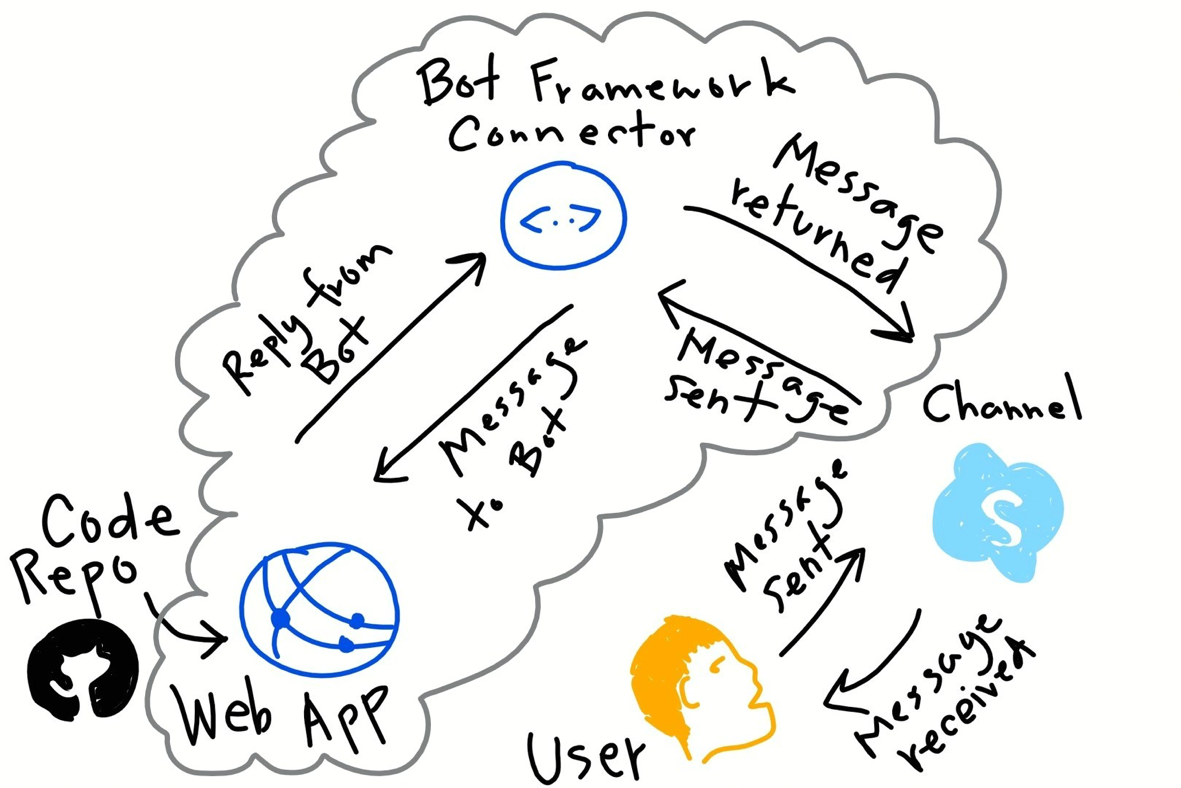 Bot Framework
Connector
Message
returned
Reply from
Bot
Message
to Bot
Message
sent
Channel
S
Code
Repo
Message
sent
Message
received
Web App
User